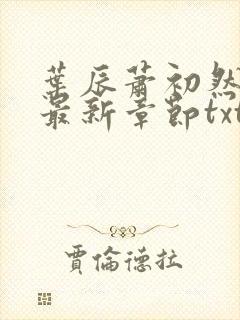 葉辰蕭初然
最新章節txt
賈倫德拉